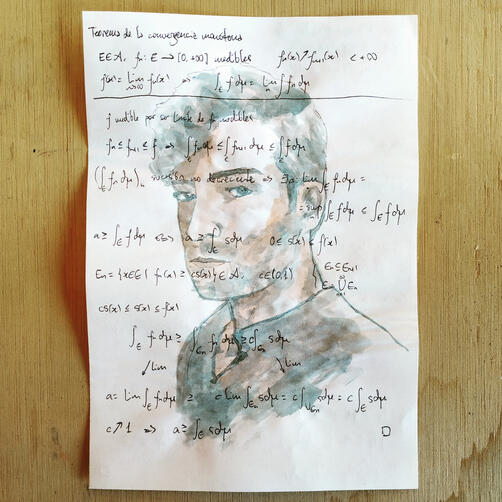 Teorema de la convergencia monótona
E∈A, fn: E → [0,+∞] medibles fn(x) ↗ fn+1(x) < +∞
f(x) = lim n→∞ fn(x) ⇒ ∫E f dμ = lim n ∫ fn dμ
f medible por ser límite de fn medibles
fn ≤ fn+1 ≤ f ⇒ ∫E fn dμ ≤ ∫E fn+1 dμ ≤ ∫E f dμ
(∫E fn dμ)n sucesión no decreciente ⇒ ∃ a = lim ∫E fn dμ =
= sup ∫E fn dμ ≤ ∫E f dμ
a ≥ ∫E f dμ ⇔ a ≥ ∫E s dμ 0 ≤ s(x) ≤ f(x)
En = {x∈E | fn(x) ≥ cs(x)} ∈ A, c∈(0,1) En ⊆ En+1
E = ∞ ⋃ n=1 En
cs(x) ≤ s(x) ≤ f(x)
∫E fn dμ ≥ ∫En fn dμ ≥ c∫En s dμ
↙ lim ↘ lim
a = lim ∫E fn dμ ≥ c lim ∫En s dμ = c ∫∪En s dμ = c ∫E s dμ
c ↗ 1 ⇒ a ≥ ∫E s dμ □